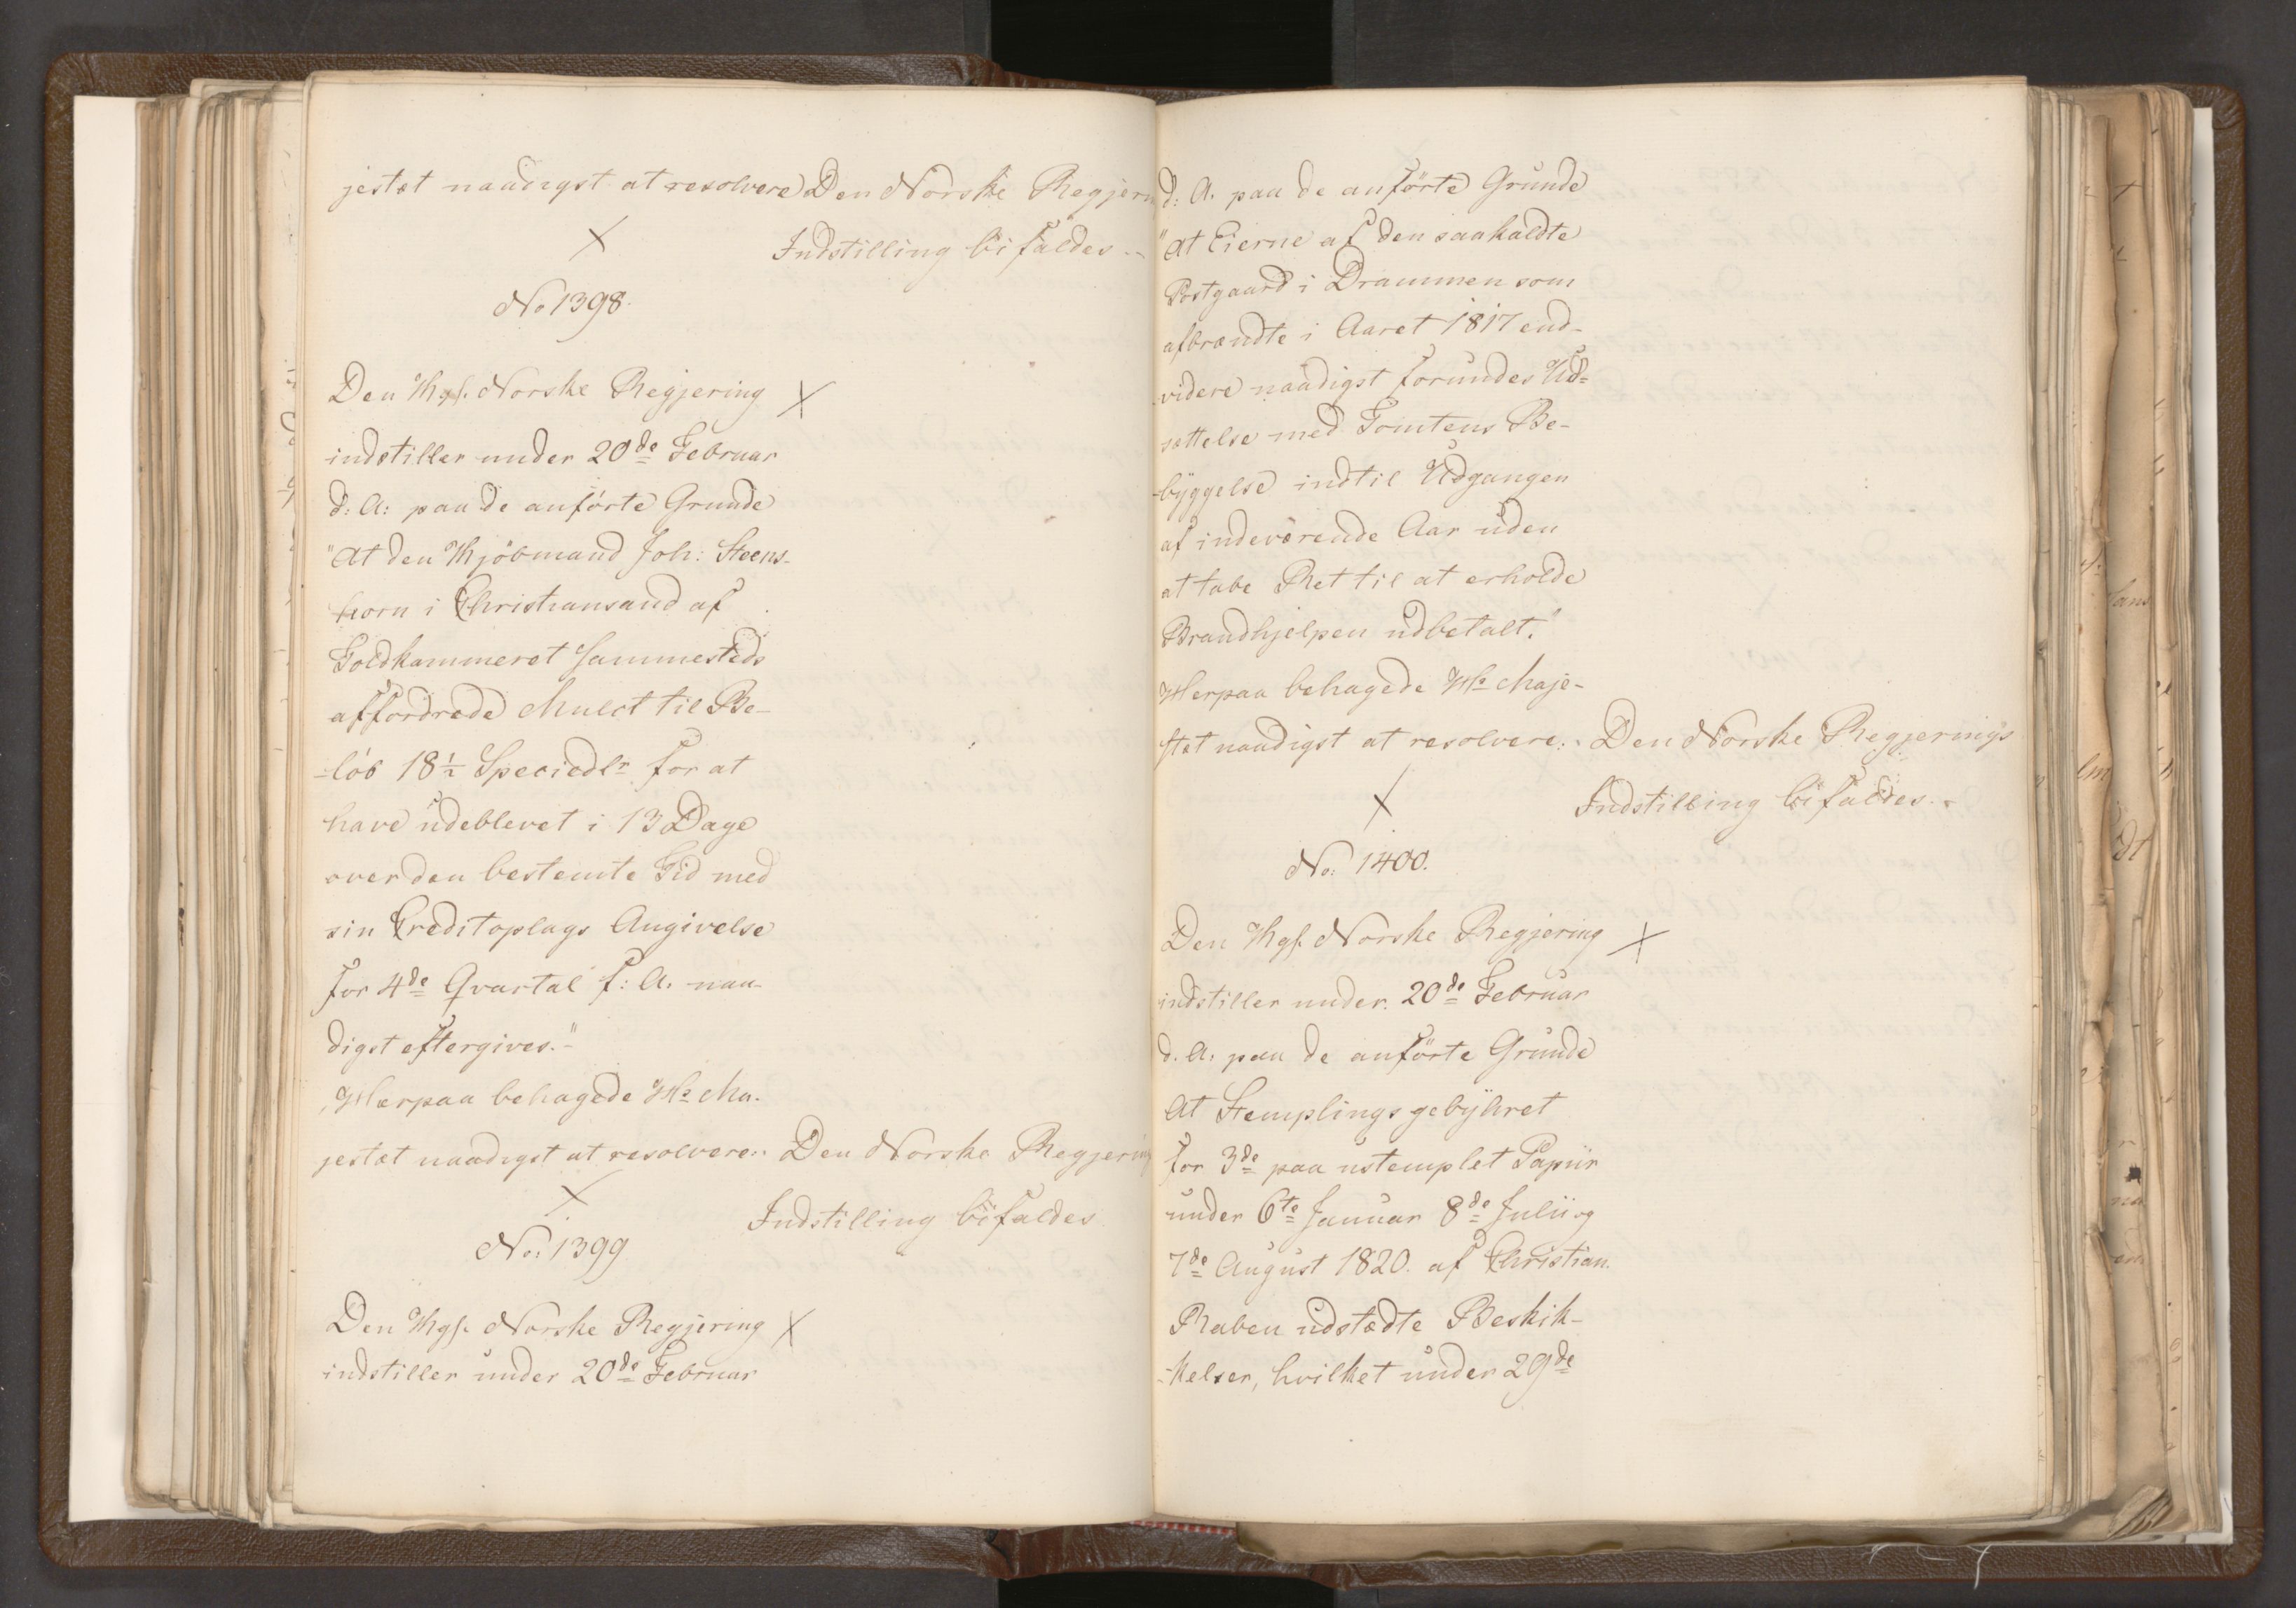 jestæt naadigst at resolvere Den Norske Regjern
Indstilling bifaldes.-
No 1398.
Den Kgl. Norske Regjering
indstiller under 20de Februar
d: A: paa de anförte Grunde
"At den Kjöbmand Joh: Steens-
horn i Christiansand af
Toldkammeret sammesteds
affordrede Mulct til Be-
-löb 18½ Speciedlr for at
have udeblevet i 13 Dage
over den bestemte Tid med
sin Creditoplags Angivelse
for 4de Qvartal f: A. naa-
digst eftergives."-
Herpaa behagede Hs Ma-
jestæt naadigst at resolvere:. Den Norske Regjering
Indstilling bifaldes
No: 1399
Den Kgl. Norske Regjering
indstiller under 20de Februar
d: A. paa de anförte Grunde
"At Eierne af den saakaldte
Postgaard i Drammen som
afbrændte i Aaret 1817 end-
videre naadigst forundes Ud-
sættelse med Tomtens Be-
byggelse indtil Udgangen
af indeværende Aar uden
at tabe Ret til at erholde
Brandhjelpen udbetalt."
Herpaa behagede Hs Maje-
stæt naadigst at resolvere:. Den Norske Regjerings
Indstilling bifaldes.-
No: 1400.
Den Kgl. Norske Regjering
indstiller under 20de Februar
d. A: paa de anförte Grunde
At Stemplingsgebyhret
for 3de paa ustemplet Papiir
under 6te Januar 8de Julii og
7de August 1820. af Christian
Raben udstædte Beskik-
-kelser, hvilket under 29de